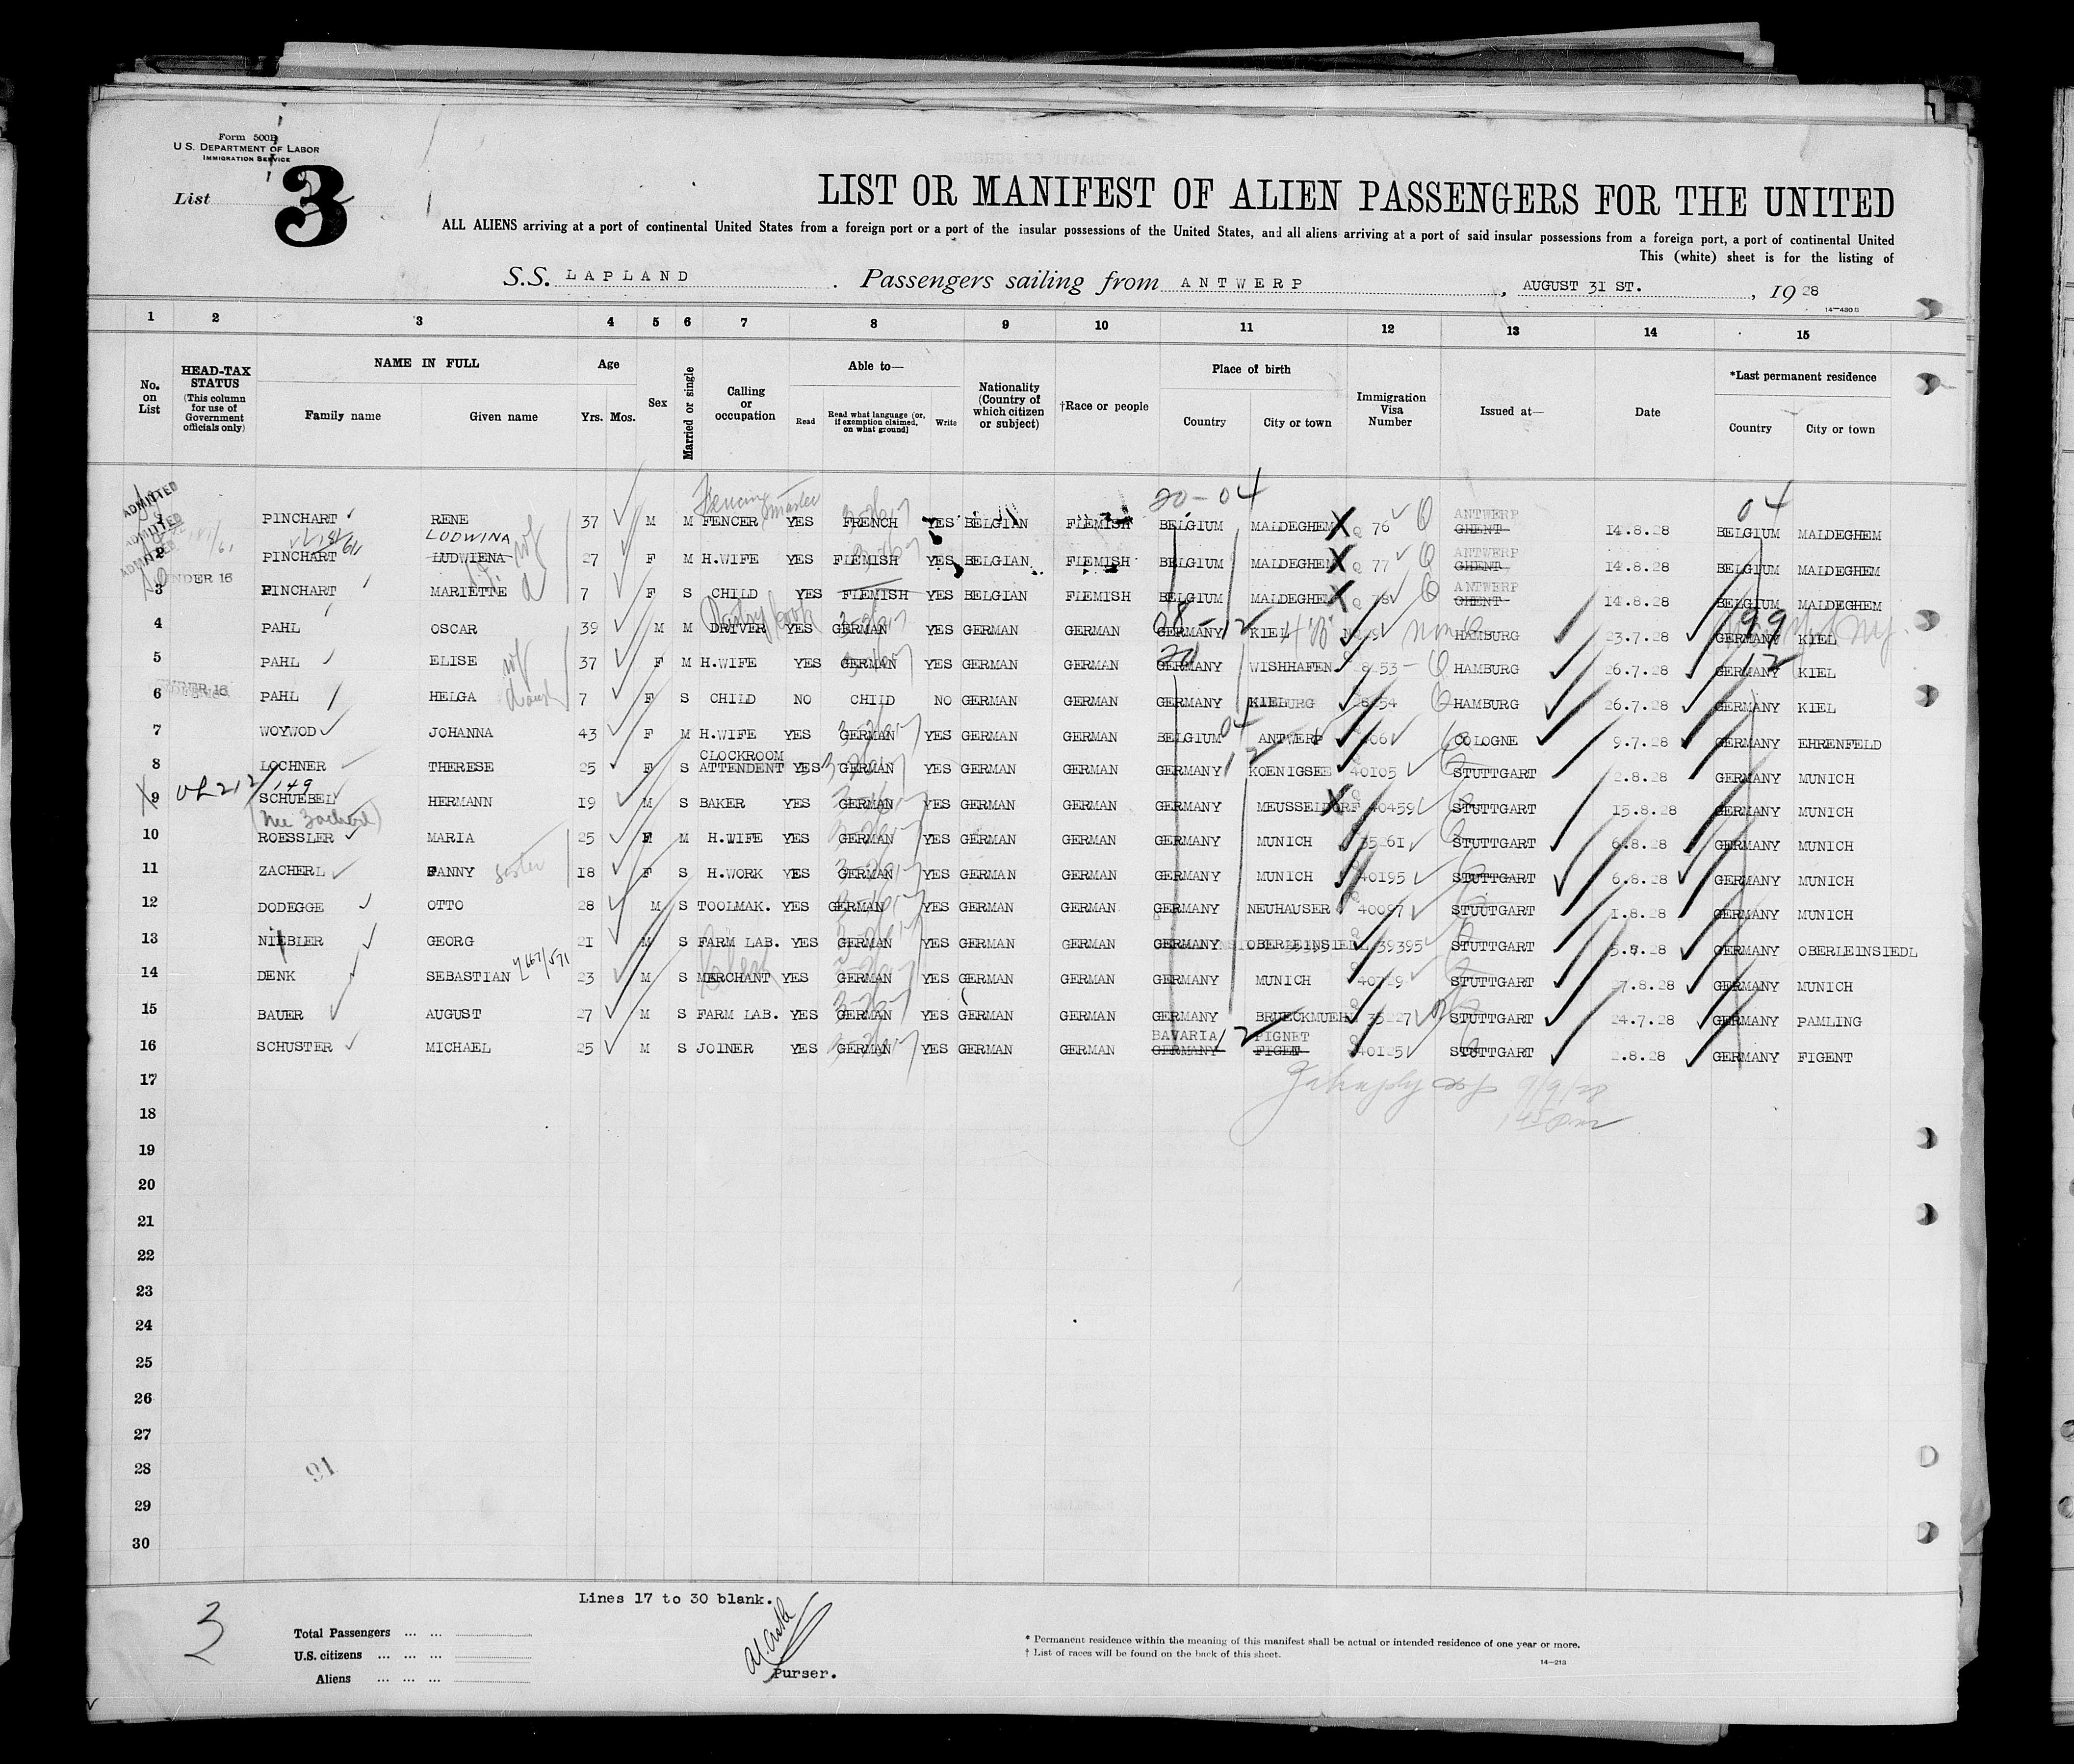 Form 500B
U. S. DEPARTMENT OF LABOR
IMMIGRATION SERVICE
List 3
LIST OR MANIFEST OF ALIEN PASSENGERS FOR THE UNITED
ALL ALIENS arriving at a port of continental United States from a foreign port or a port of the insular possessions of the United States, and all aliens arriving at a port of said insular possessions from a foreign port, a port of continental United
This (white) sheet is for the listing of
S.S. LAPLAND . Passengers sailing from ANTWERP , AUGUST 31 ST. , 1928
14—430 B
1 2 3 4 5 6 7 8 9 10 11 12 13 14 15
No. on List
HEAD-TAX STATUS (This column for use of Government officials only)
NAME IN FULL
Family name Given name
Age
Yrs. Mos.
Sex
Married or single
Calling or occupation
Able to—
Read Read what language (or, if exemption claimed, on what ground) Write
Nationality (Country of which citizen or subject)
†Race or people
Place of birth
Country City or town
Immigration Visa Number
Issued at—
Date
*Last permanent residence
Country City or town
ADMITTED
ADMITTED
ADMITTED
Fencing master
20-04
04
ANTWERP
PINCHART RENE 37 M M FENCER YES FRENCH YES BELGIAN FLEMISH BELGIUM MALDEGHEM Q 76 GHENT 14.8.28 BELGIUM MALDEGHEM
LUDWINA wf
181/61
ANTWERP
2 PINCHART LUDWIENA 27 F M H.WIFE YES FLEMISH YES BELGIAN FLEMISH BELGIUM MALDEGHEM Q 77 GHENT 14.8.28 BELGIUM MALDEGHEM
UNDER 16
ANTWERP
3 PINCHART MARIETTE d 7 F S CHILD YES FLEMISH YES BELGIAN FLEMISH BELGIUM MALDEGHEM Q 78 GHENT 14.8.28 BELGIUM MALDEGHEM
Pastry cook
08-12
99
4 PAHL OSCAR 39 M M DRIVER YES GERMAN YES GERMAN GERMAN GERMANY KIEL HAMBURG 23.7.28 GERMANY KIEL
20
12
5 PAHL ELISE wf 37 F M H.WIFE YES GERMAN YES GERMAN GERMAN GERMANY WISHHAFEN 28253 HAMBURG 26.7.28 GERMANY KIEL
UNDER 16
6 PAHL HELGA daugh 7 F S CHILD NO CHILD NO GERMAN GERMAN GERMANY KIEL HAMBURG 26.7.28 GERMANY KIEL
04
7 WOYWOD JOHANNA 43 F M H.WIFE YES GERMAN YES GERMAN GERMAN BELGIUM ANTWERP COLOGNE 9.7.28 GERMANY EHRENFELD
CLOCKROOM
12
8 LOCHNER THERESE 25 F S ATTENDENT YES GERMAN YES GERMAN GERMAN GERMANY KOENIGSEE 40105 STUTTGART 2.8.28 GERMANY MUNICH
VL 212/149
9 SCHUEBEL HERMANN 19 M S BAKER YES GERMAN YES GERMAN GERMAN GERMANY MEUSSELDORF 40459 STUTTGART 15.8.28 GERMANY MUNICH
(nee Zacherl)
10 ROESSLER MARIA 25 F M H.WIFE YES GERMAN YES GERMAN GERMAN GERMANY MUNICH 35261 STUTTGART 6.8.28 GERMANY MUNICH
11 ZACHERL FANNY sister 18 F S H.WORK YES GERMAN YES GERMAN GERMAN GERMANY MUNICH 40195 STUTTGART 6.8.28 GERMANY MUNICH
12 DODEGGE OTTO 28 M S TOOLMAK. YES GERMAN YES GERMAN GERMAN GERMANY NEUHAUSER 40097 STUUTGART 1.8.28 GERMANY MUNICH
13 NIEBLER GEORG 21 M S FARM LAB. YES GERMAN YES GERMAN GERMAN GERMANY OBERLEINSIEDL 39395 STUTTGART GERMANY OBERLEINSIEDL
14 DENK SEBASTIAN 23 M S MERCHANT YES GERMAN YES GERMAN GERMAN GERMANY MUNICH STUTTGART 7.8.28 GERMANY MUNICH
15 BAUER AUGUST 27 M S FARM LAB. YES GERMAN YES GERMAN GERMAN GERMANY BRUECKMUEH STUTTGART 24.7.28 GERMANY PAMLING
BAVARIA 12 PIGNET
16 SCHUSTER MICHAEL 25 M S JOINER YES GERMAN YES GERMAN GERMAN GERMANY FIGEN 40125 STUTTGART 2.8.28 GERMANY FIGENT
17
9/9/28
18
19
20
21
22
23
24
25
26
27
28
91
29
30
Lines 17 to 30 blank.
3
Total Passengers ... ...
U.S. citizens ... ... ...
Aliens ... ... ...
Purser.
* Permanent residence within the meaning of this manifest shall be actual or intended residence of one year or more.
† List of races will be found on the back of this sheet.
14—213